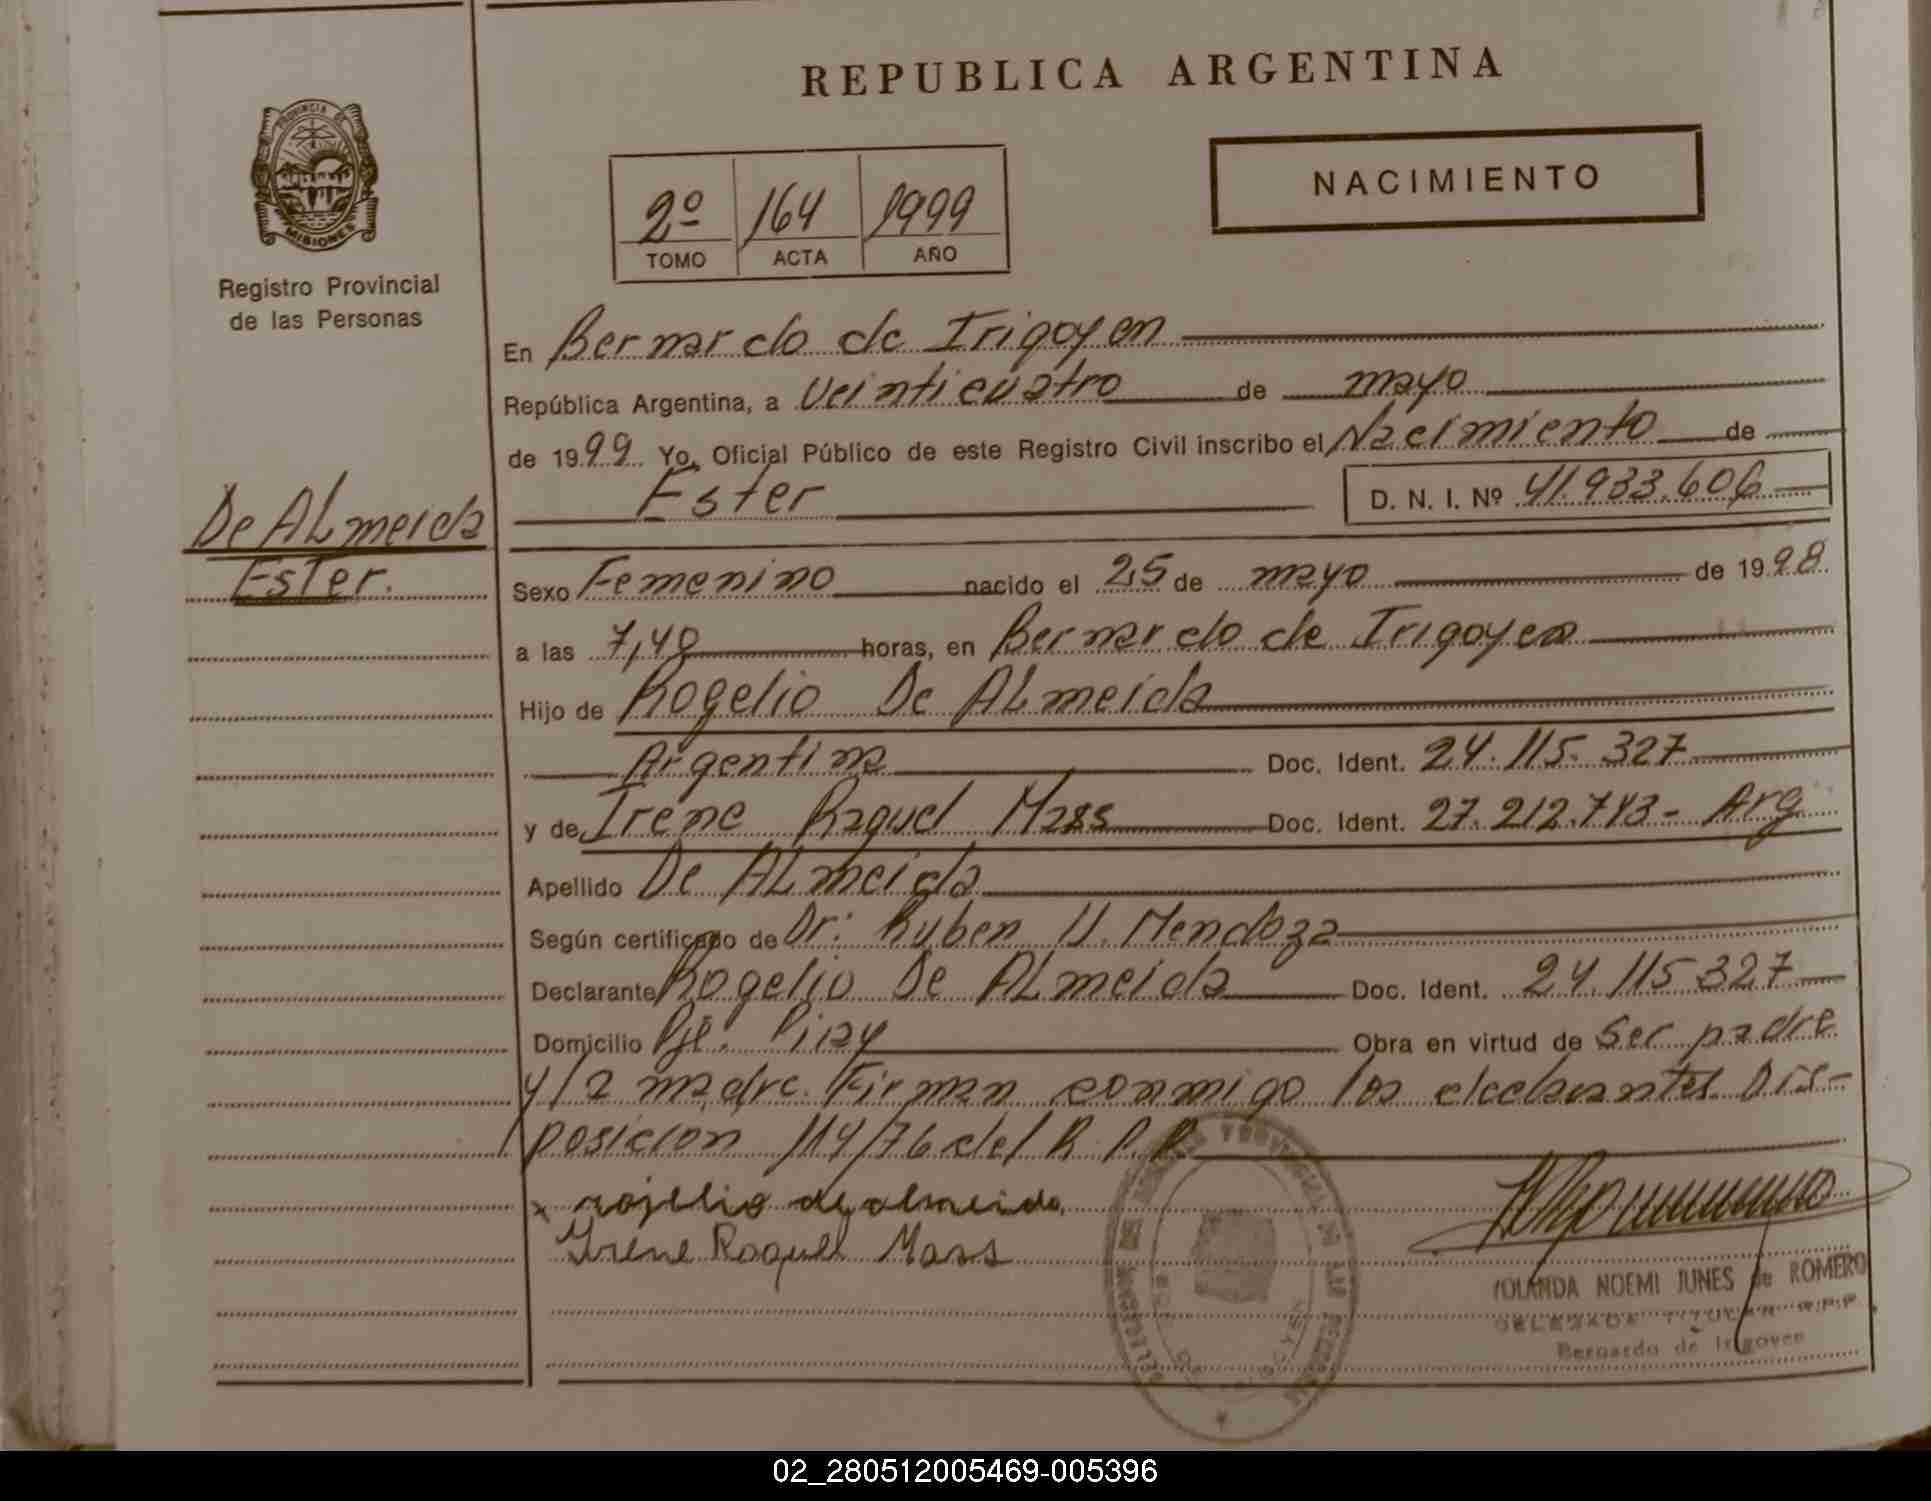 REPUBLICA ARGENTINA
PROVINCIA DE
MISIONES
Registro Provincial
de las Personas
NACIMIENTO
2º 164 1999
TOMO ACTA AÑO
En Bernardo de Irigoyen
República Argentina, a veinticuatro de mayo
de 1999 Yo, Oficial Público de este Registro Civil inscribo el Nacimiento de
Ester D. N. I. Nº 41.933.606
De ALmeida
Ester.
Sexo Femenino nacido el 25 de mayo de 1998
a las 7,40 horas, en Bernardo de Irigoyen
Hijo de Rogelio De ALmeida
Argentina Doc. Ident. 24.115.327
y de Irene Raquel Mass Doc. Ident. 27.212.743- Arg
Apellido De ALmeida
Según certificado de Dr: Ruben U. Mendoza
Declarante Rogelio De ALmeida Doc. Ident. 24.115.327
Domicilio Pje. Piray Obra en virtud de ser padre
y la madre. Firman conmigo los declarantes. Dis-
posicion 114/76 del R. P. P.
x rojelio de almeida
Irene Raquel Mass
YOLANDA NOEMI JUNES de ROMERO
DELEGADA TITULAR R.P.P.
Bernardo de Irigoyen
02_280512005469-005396